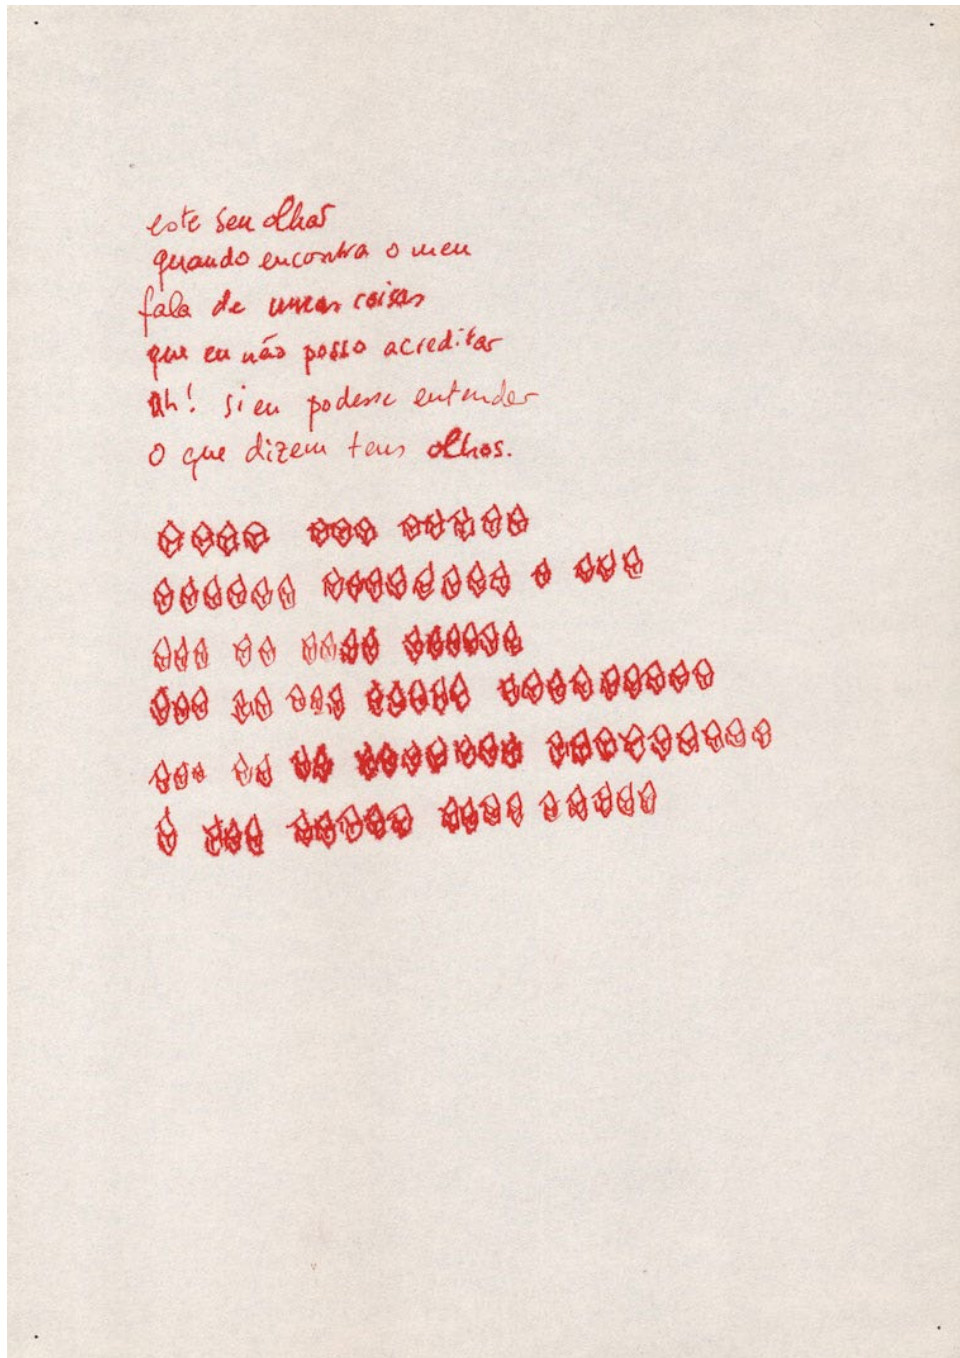 este seu olhar
quando encontra o meu
fala de umas coisas
que eu não posso acreditar
ah! si eu podesse entender
o que dizem teus olhos.